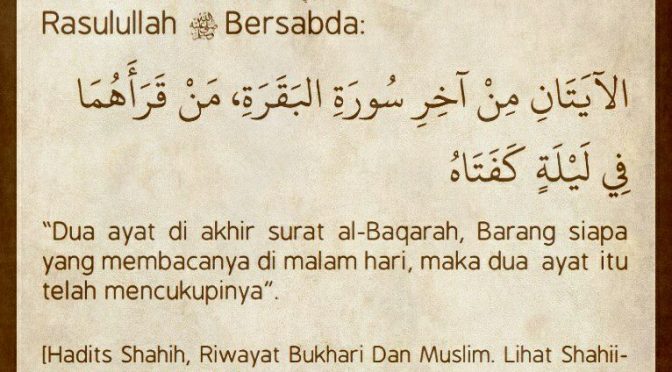 Rasulullah ﷺ Bersabda:
الآيَتَانِ مِنْ آخِرِ سُورَةِ البَقَرَةِ، مَنْ قَرَأَهُمَا
فِي لَيْلَةٍ كَفَتَاهُ
“Dua ayat di akhir surat al-Baqarah, Barang siapa
yang membacanya di malam hari, maka dua ayat itu
telah mencukupinya”.
[Hadits Shahih, Riwayat Bukhari Dan Muslim. Lihat Shahii-